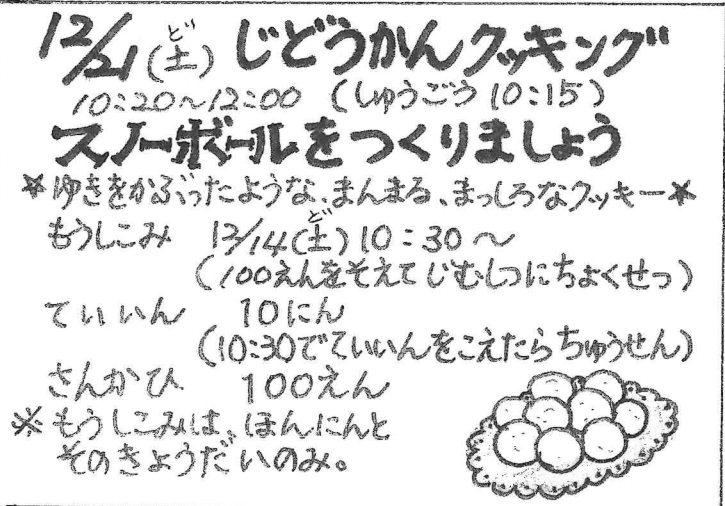 12/21(土) じどうかんクッキング
10:20~12:00 (しゅうごう 10:15)
スノーボールをつくりましょう
*ゆきをかぶったような、まんまる、まっしろなクッキー*
もうしこみ 12/14(土) 10:30~
(100えんをそえてじむしつにちょくせつ)
ていいん 10にん
(10:30でていいんをこえたらちゅうせん)
さんかひ 100えん
※もうしこみは、ほんにんと
そのきょうだいのみ。